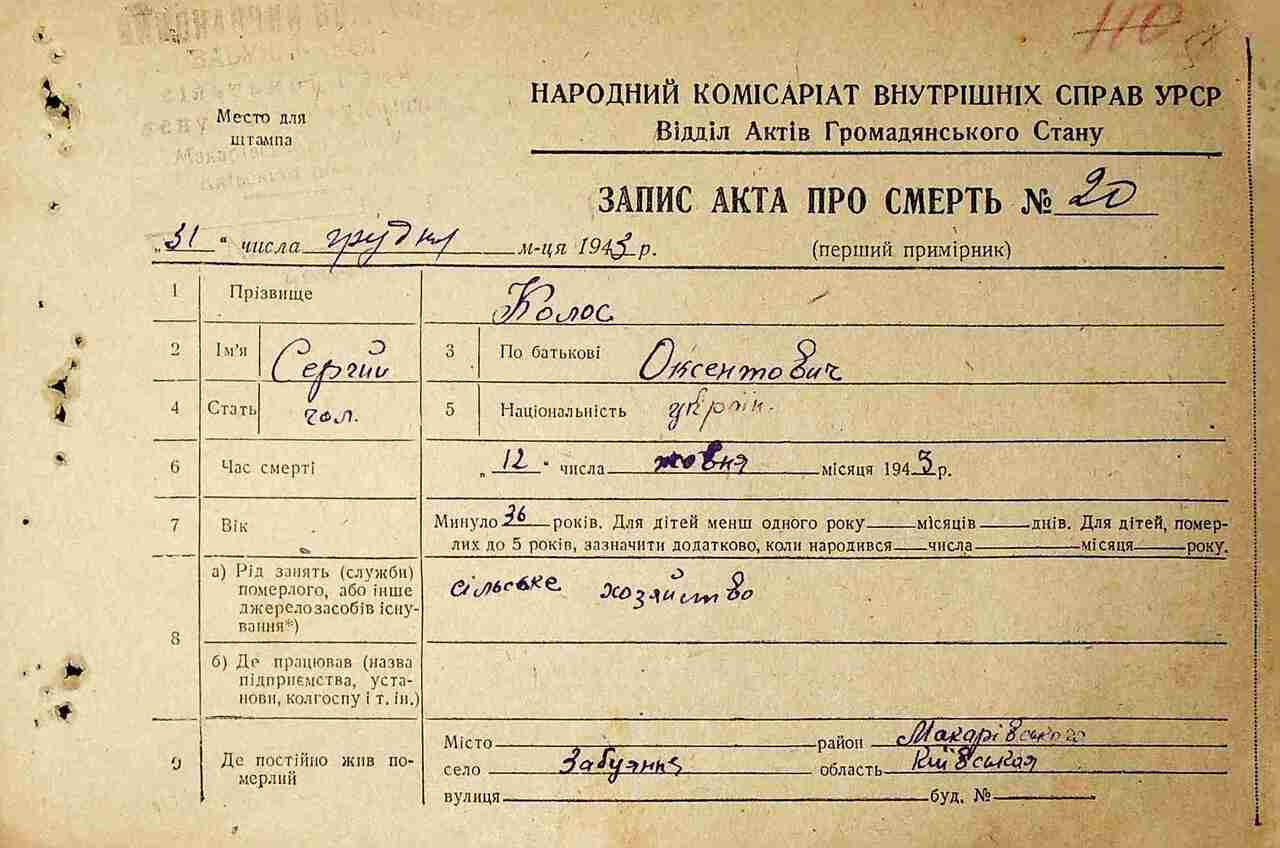 110
НАРОДНИЙ КОМІСАРІАТ ВНУТРІШНІХ СПРАВ УРСР
Відділ Актів Громадянського Стану
Место для
штампа
ЗАПИС АКТА ПРО СМЕРТЬ № 20
„31“ числа грудня м-ця 1943 р. (перший примірник)
1 Прізвище Колос
2 Ім'я Сергий 3 По батькові Оксентович
4 Стать чол. 5 Національність україн.
6 Час смерті „12“ числа жовня місяця 1943 р.
7 Вік Минуло 36 років. Для дітей менш одного року місяців днів. Для дітей, помер-
лих до 5 років, зазначити додатково, коли народився числа місяця року.
8 а) Рід занять (служби)
померлого, або інше
джерело засобів існу-
вання*) сільське хозяйство
б) Де працював (назва
підприємства, уста-
нови, колгоспу і т. ін.)
9 Де постійно жив по-
мерлий
Місто район Макарівського
село Забуяння область Київськая
вулиця буд. №